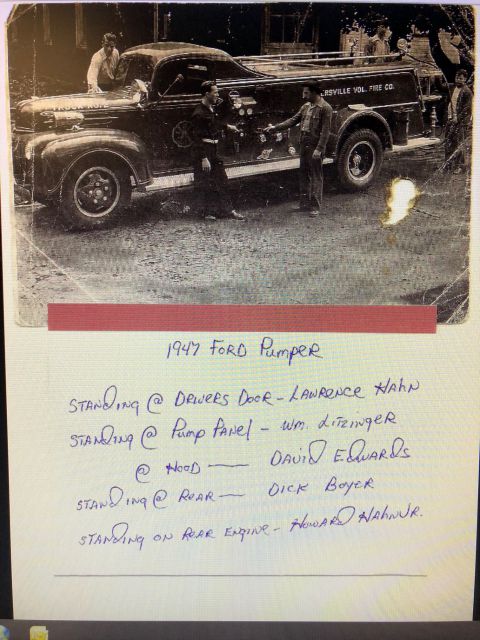 ERSVILLE VOL. FIRE CO.
1947 FORD Pumper
STANDING @ DRIVERS DOOR - LAWRENCE HAHN
STANDING @ Pump PANEL - Wm. LITZINGER
@ HOOD — DAVID EDWARDS
STANDING @ REAR — DICK BOYER
STANDING ON REAR ENGINE - HOWARD HAHN JR.